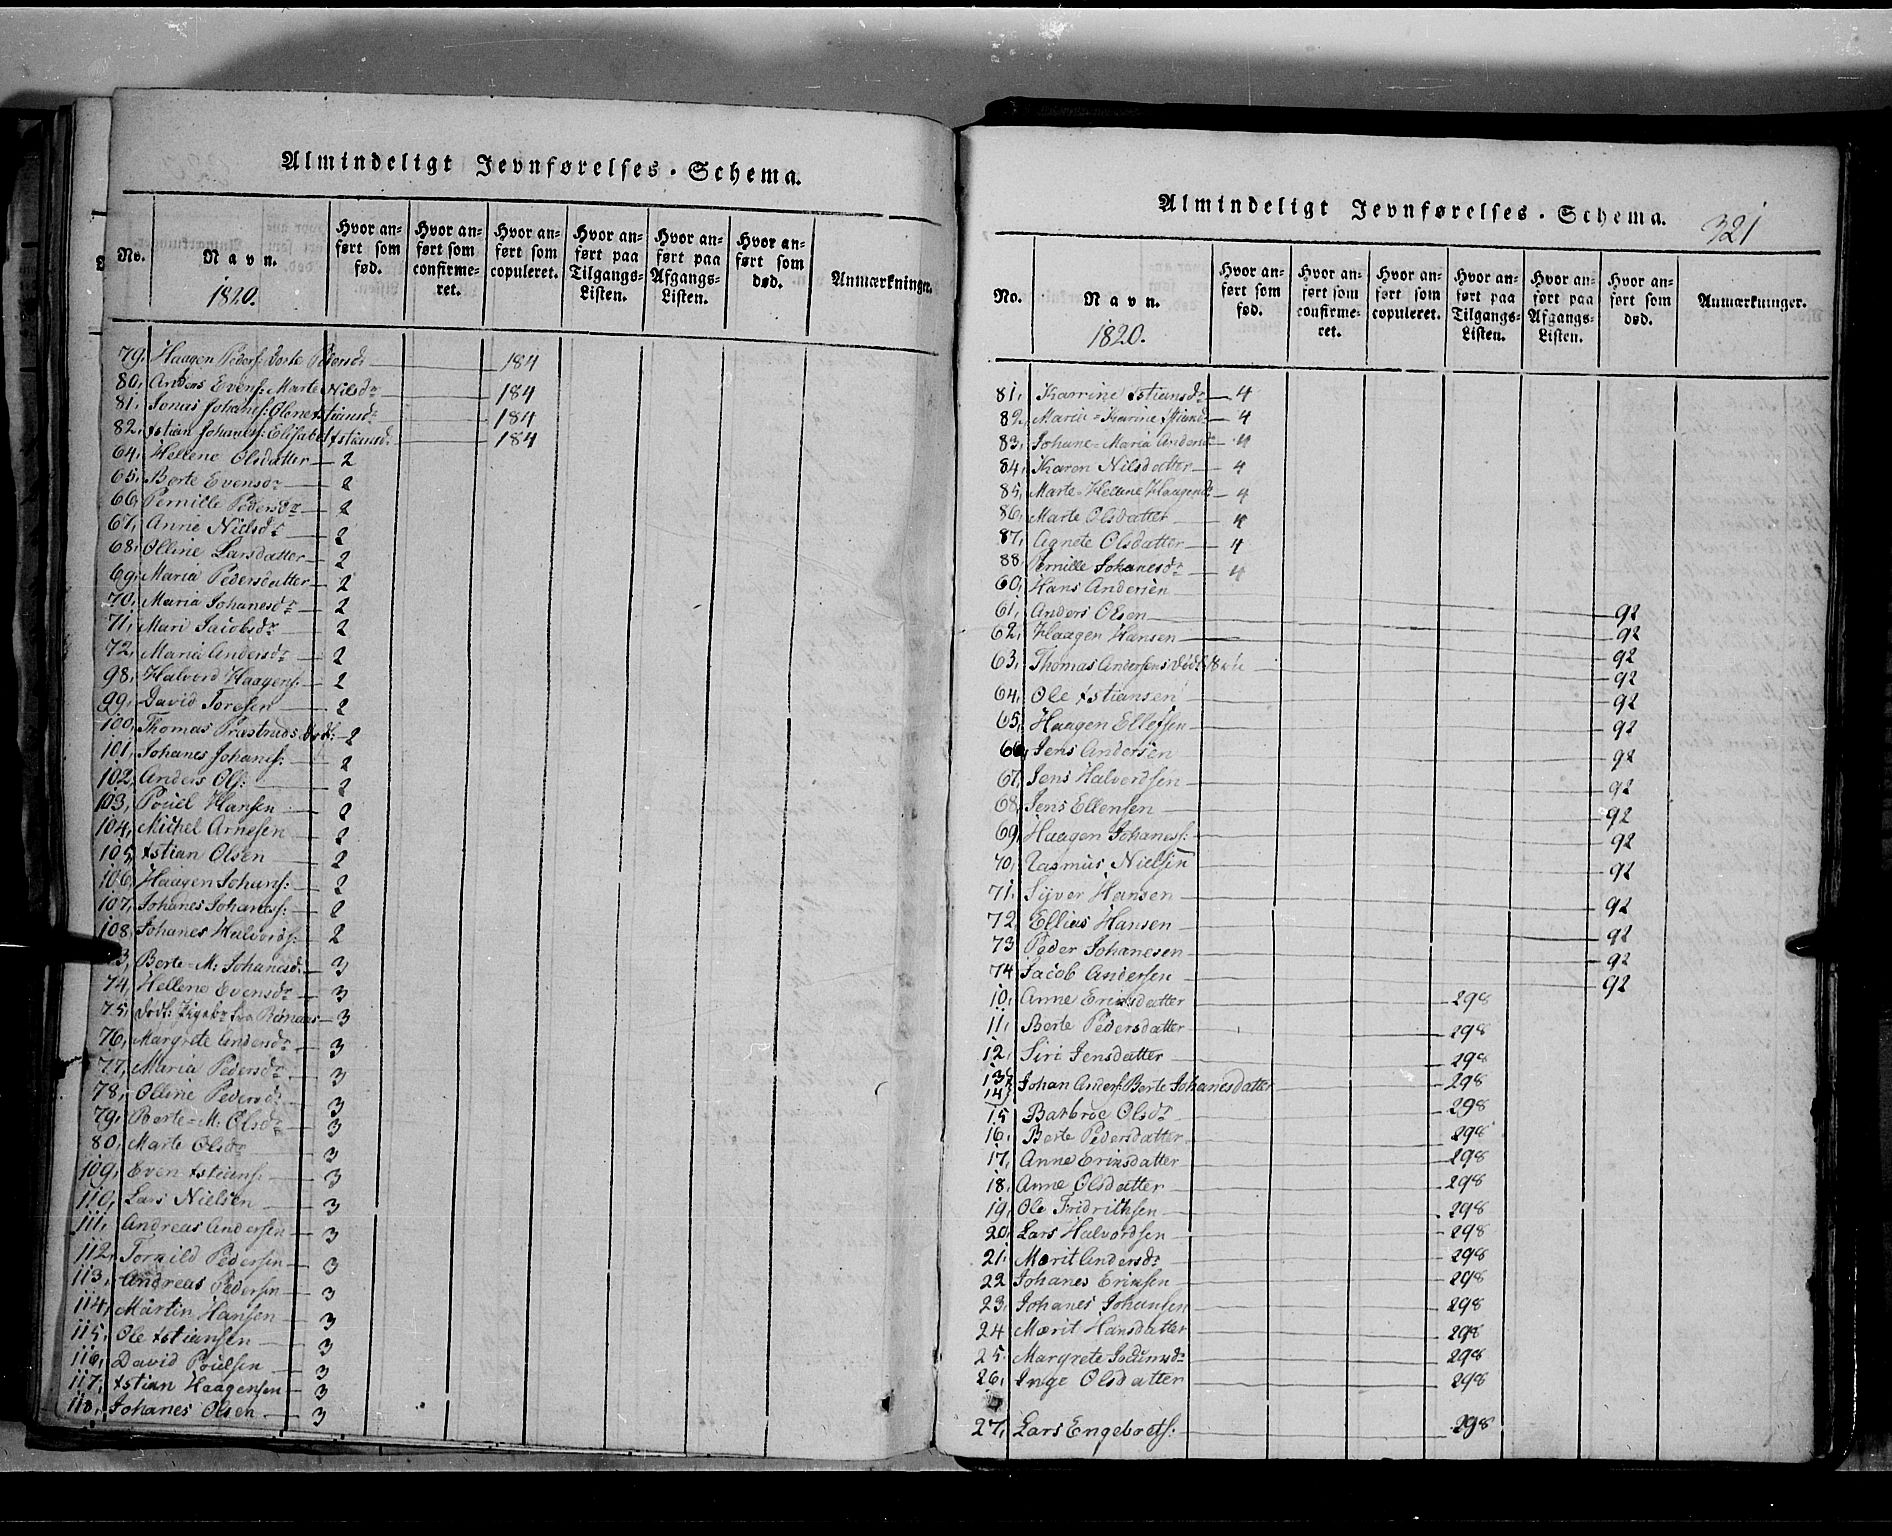 Almindeligt Jevnførelses-Schema.
No.
Navn.
1820.
Hvor an-
ført som
fød.
Hvor an-
ført som
confirme-
ret.
Hvor an-
ført som
copuleret.
Hvor an-
ført paa
Tilgangs-
Listen.
Hvor an-
ført paa
Afgangs-
Listen.
Hvor an-
ført som
død.
Anmærkninger.
79, Haagen Peders: Dorte Pedersdr 184
80, Anders Evens: Marte Nilsdr 184
81, Jonas Johans: Olene Xstiansdr 184
82, Xstian Johanes: Elisabet Xstiansdr 184
64, Hellene Olsdatter 2
65, Berte Evensdr 2
66, Pernille Pedersdr 2
67, Anne Nielsdr 2
68, Olline Larsdatter 2
69, Maria Pedersdatter 2
70, Maria Johanesdr 2
71, Mari Jacobsdr 2
72, Maria Andersdr 2
98, Halvord Haagens: 2
99, David Toresen 2
100, Thomas Præstruds 2
101, Johanes Johans: 2
102, Anders Ols: 2
103, Pouel Hansen 2
104, Michel Arnesen 2
105, Xstian Olsen 2
106, Haagen Johans: 2
107, Johanes Johanes: 2
108, Johanes Halvords: 2
73, Berte-M: Johanesdr 3
74, Hellene Evensdr 3
75, død: Pigebr fra 3
76, Margrete Andersdr 3
77, Maria Pedersdr 3
78, Olline Pedersdr 3
79, Berte-M: Olsdr 3
80, Marte Olsdr 3
109, Even Xstians: 3
110, Lars Nielsen 3
111, Andreas Andersen 3
112, Torkild Pedersen 3
113, Andreas Pedersen 3
114, Martin Hansen 3
115, Ole Xstiansen 3
116, David Poulsen 3
117, Xstian Haagensen 3
118, Johanes Olsen 3
Almindeligt Jevnførelses-Schema.
321
No.
Navn.
1820.
Hvor an-
ført som
fød.
Hvor an-
ført som
confirme-
ret.
Hvor an-
ført som
copuleret.
Hvor an-
ført paa
Tilgangs-
Listen.
Hvor an-
ført paa
Afgangs-
Listen.
Hvor an-
ført som
død.
Anmærkninger.
81, Karrine Xstiansdr 4
82, Marie-Karine Xstiansdr 4
83, Johane-Maria Andersdr 4
84, Karen Nilsdatter 4
85, Marte-Hellene Haagensdr 4
86, Marte Olsdatter 4
87, Agnete Olsdatter 4
88 Pernille Johanesdr 4
60, Hans Andersen 92
61, Anders Olsen 92
62, Haagen Hansen 92
63, Thomas Andersens 92
64, Ole Xstiansen 92
65, Haagen Ellefsen 92
66, Jens Andersen 92
67, Jens Halvordsen 92
68, Jens Ellensen 92
69, Haagen Johaness: 92
70, Rasmus Nielsen 92
71, Syver Hansen 92
72, Ellias Hansen 92
73 Peder Johanesen 92
74 Jacob Andersen 92
10, Anne Eriksdatter 298
11, Berte Pedersdatter 298
12, Siri Jensdatter 298
13, Johan Anders: Berte Johanesdatter 298
14,
15 Barbroe Olsdr 298
16, Berte Pedersdatter 298
17, Anne Eriksdatter 298
18, Anne Olsdatter 298
19, Ole Fridrichsen 298
20, Lars Halvordsen 298
21, Marit Andersdr 298
22 Johanes Eriksen 298
23, Johanes Johansen 298
24 Marit Hansdatter 298
25, Margrete 298
26, Inge Olsdatter 298
27, Lars Engebrets: 298